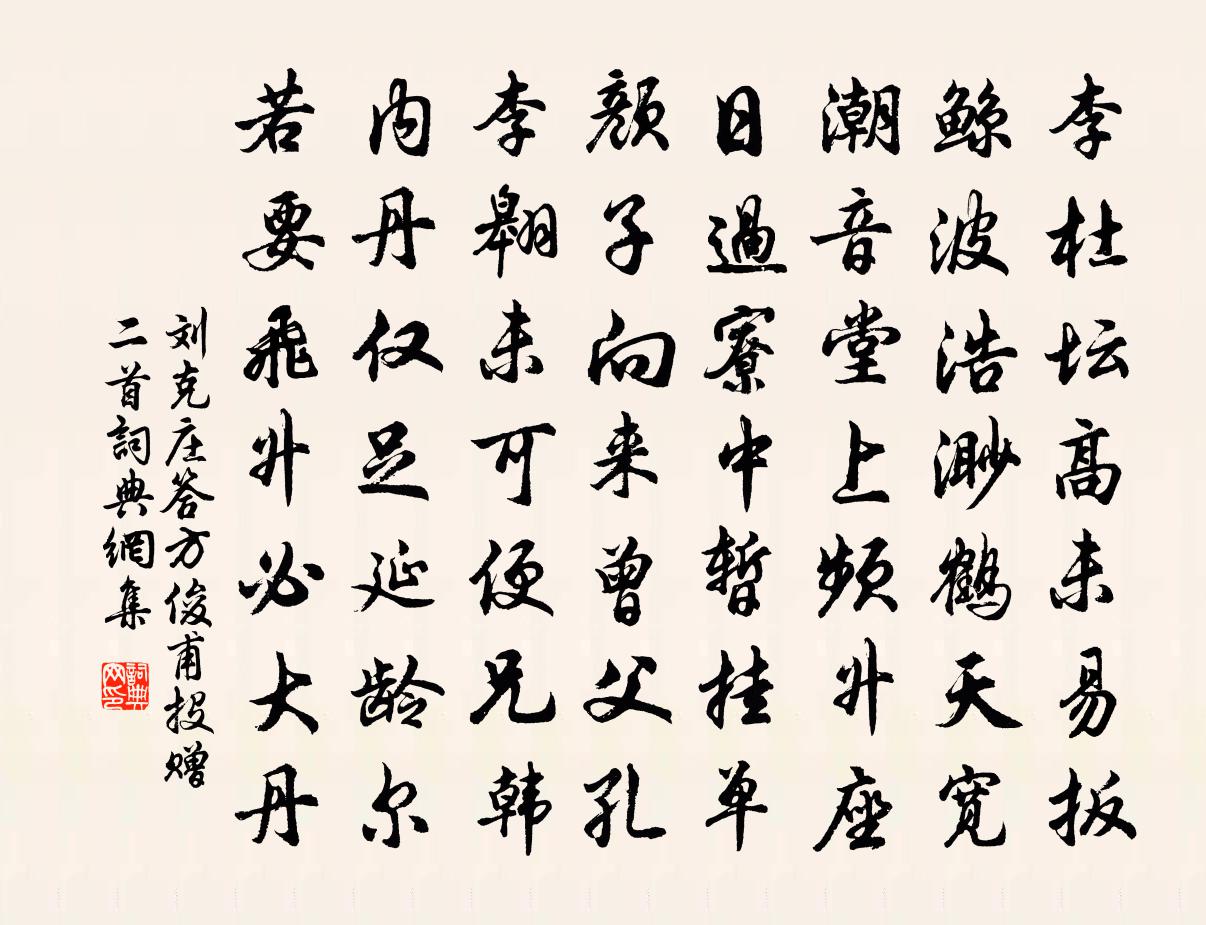 李杜坛高未易扳
鲸波浩渺鹤天宽
潮音堂上频升座
日過寮中暫挂单
顏子向来曾父孔
李翱未可便兄韩
内丹仅足延龄尔
若要飛升必大丹
刘克庄答方俊甫投赠
二首詞典網集
詞典网印